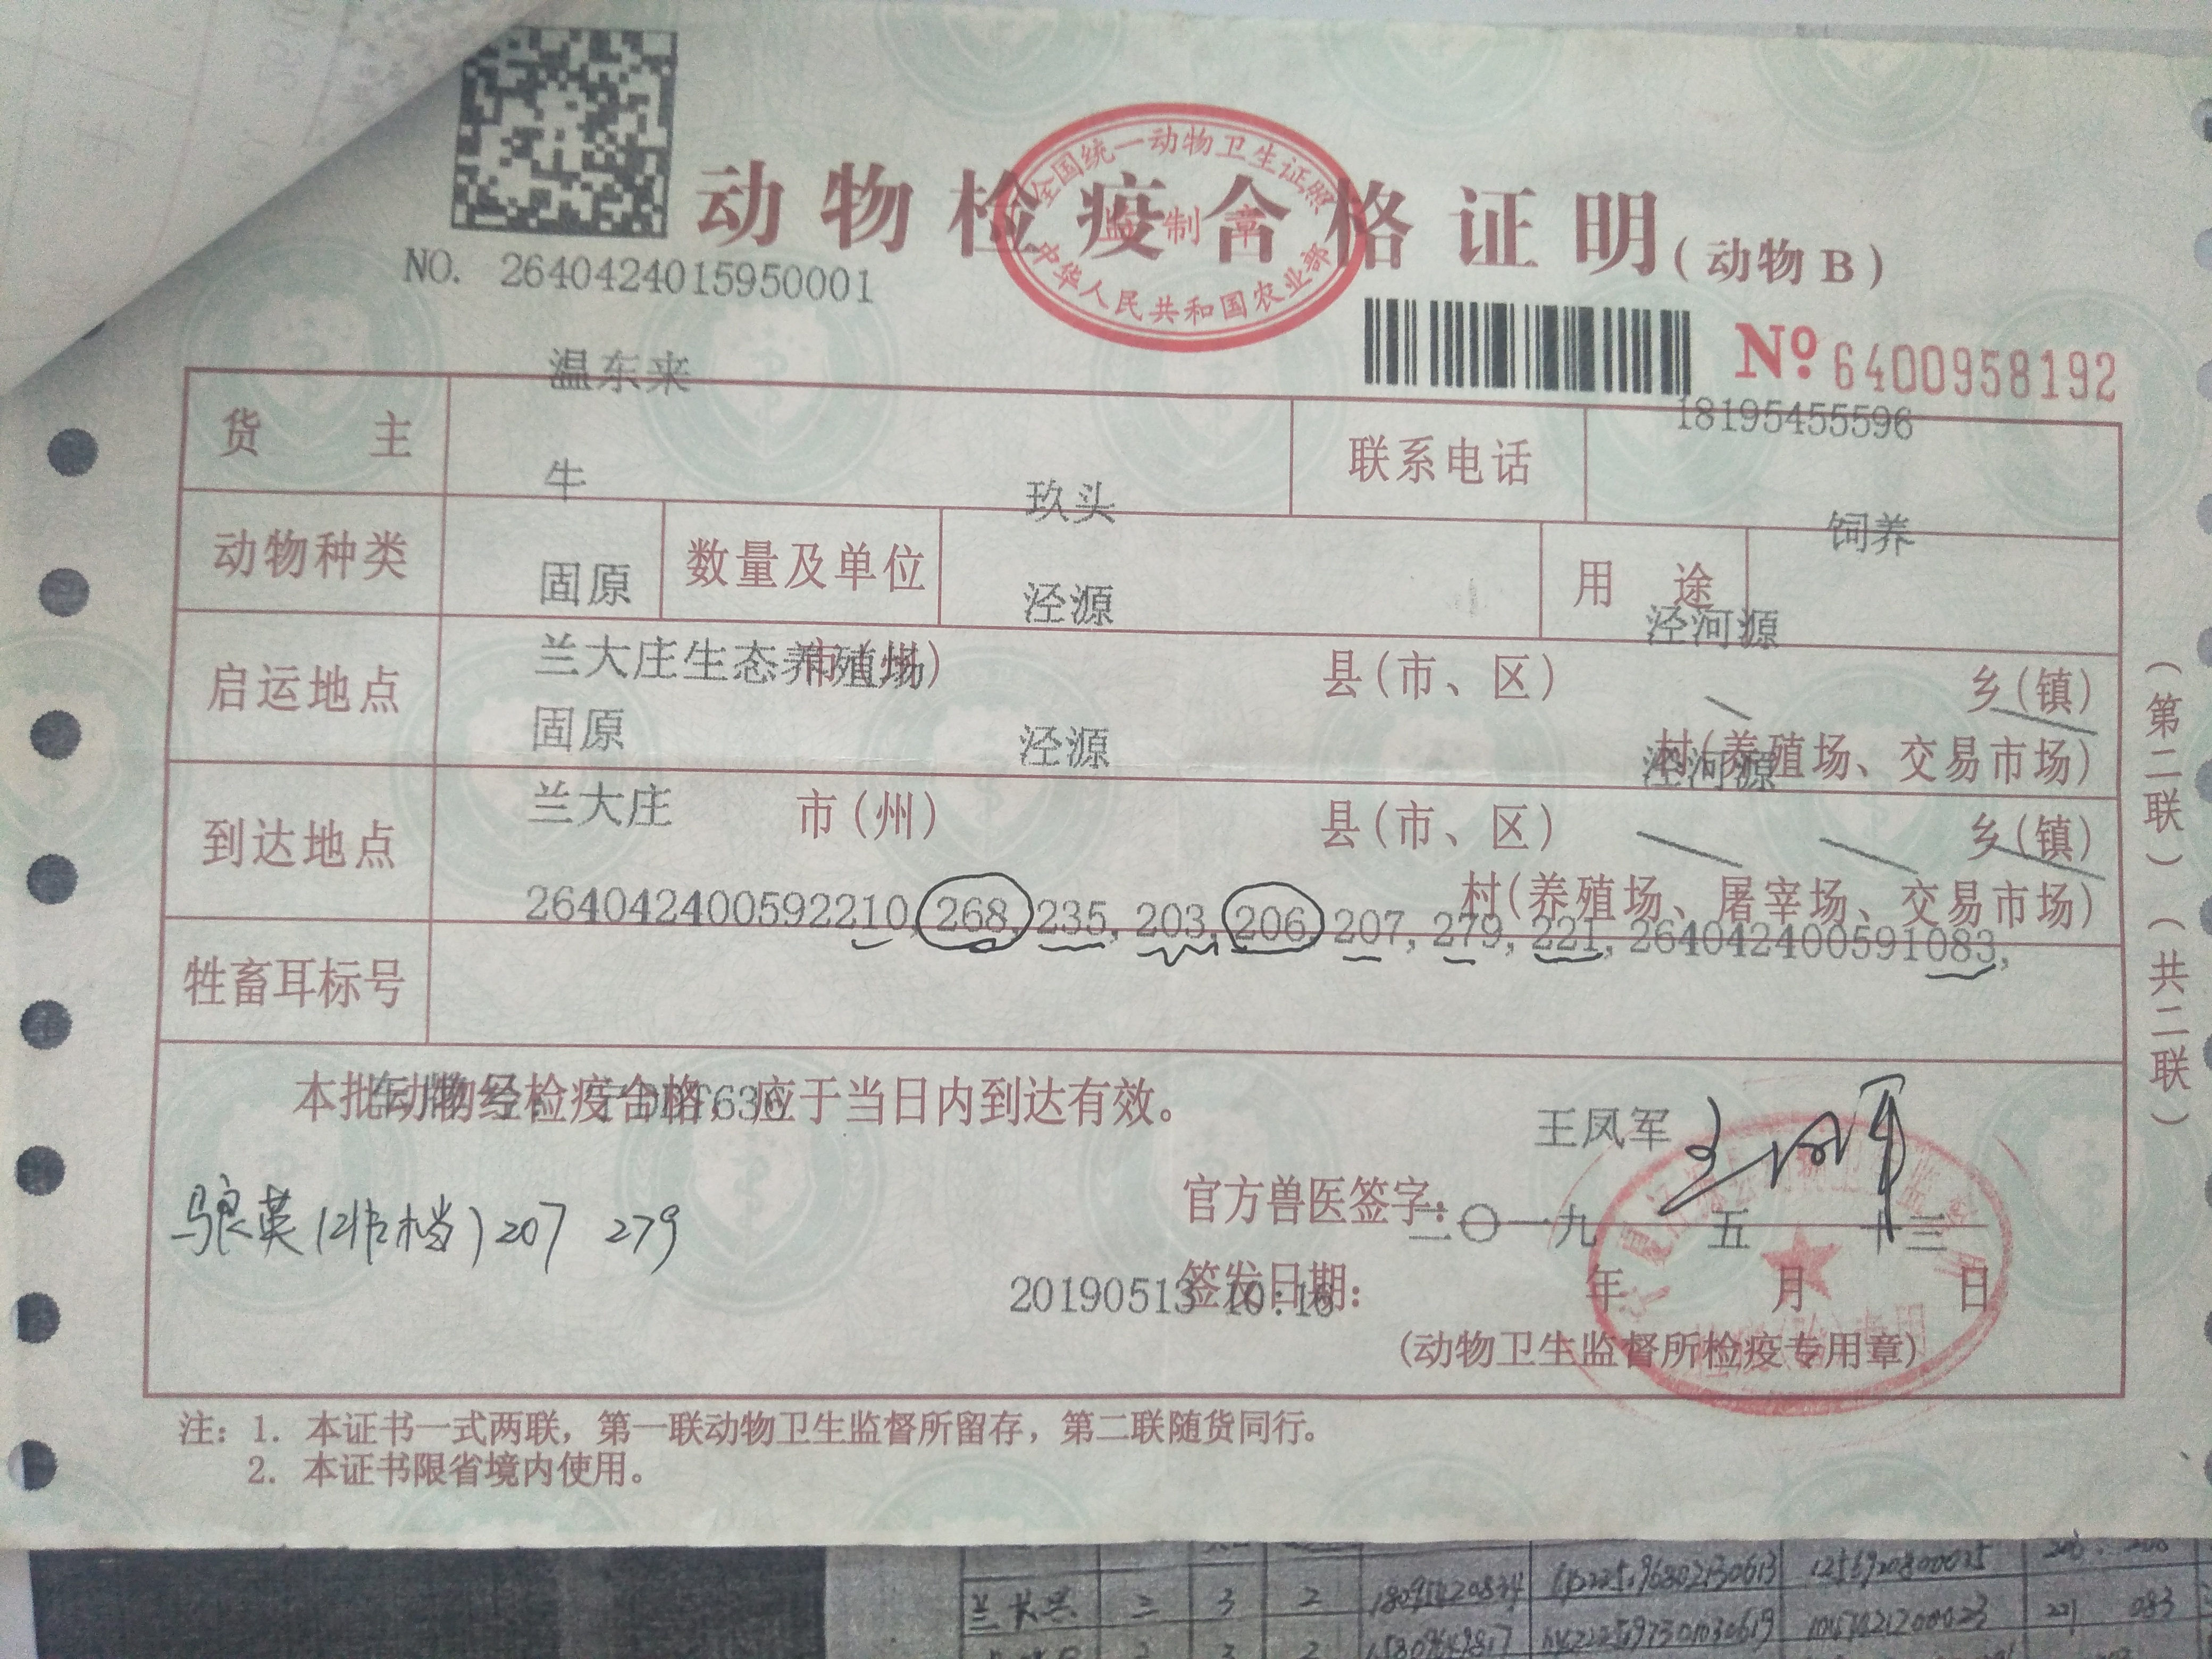 全国统一动物卫生证照
监制章
中华人民共和国农业部
动物检疫合格证明(动物B)
NO. 2640424015950001
№ 6400958192
温东来
18195455596
货 主
联系电话
牛
玖头
饲养
动物种类
数量及单位
用 途
固原
泾源
泾河源
启运地点
市(州)
县(市、区)
乡(镇)
兰大庄生态养殖场
村(养殖场、交易市场)
固原
泾源
泾河源
到达地点
市(州)
县(市、区)
乡(镇)
兰大庄
村(养殖场、屠宰场、交易市场)
264042400592210, 268, 235, 203, 206, 207, 279, 221, 264042400591083,
牲畜耳标号
本批动物经检疫合格，应于当日内到达有效。
王凤军
官方兽医签字：
二〇一九 五 十三
签发日期： 年 月 日
20190513 10:16
(动物卫生监督所检疫专用章)
207 279
注：1. 本证书一式两联，第一联动物卫生监督所留存，第二联随货同行。
2. 本证书限省境内使用。
(第二联)(共二联)
兰长兴 三 3 2
221 083